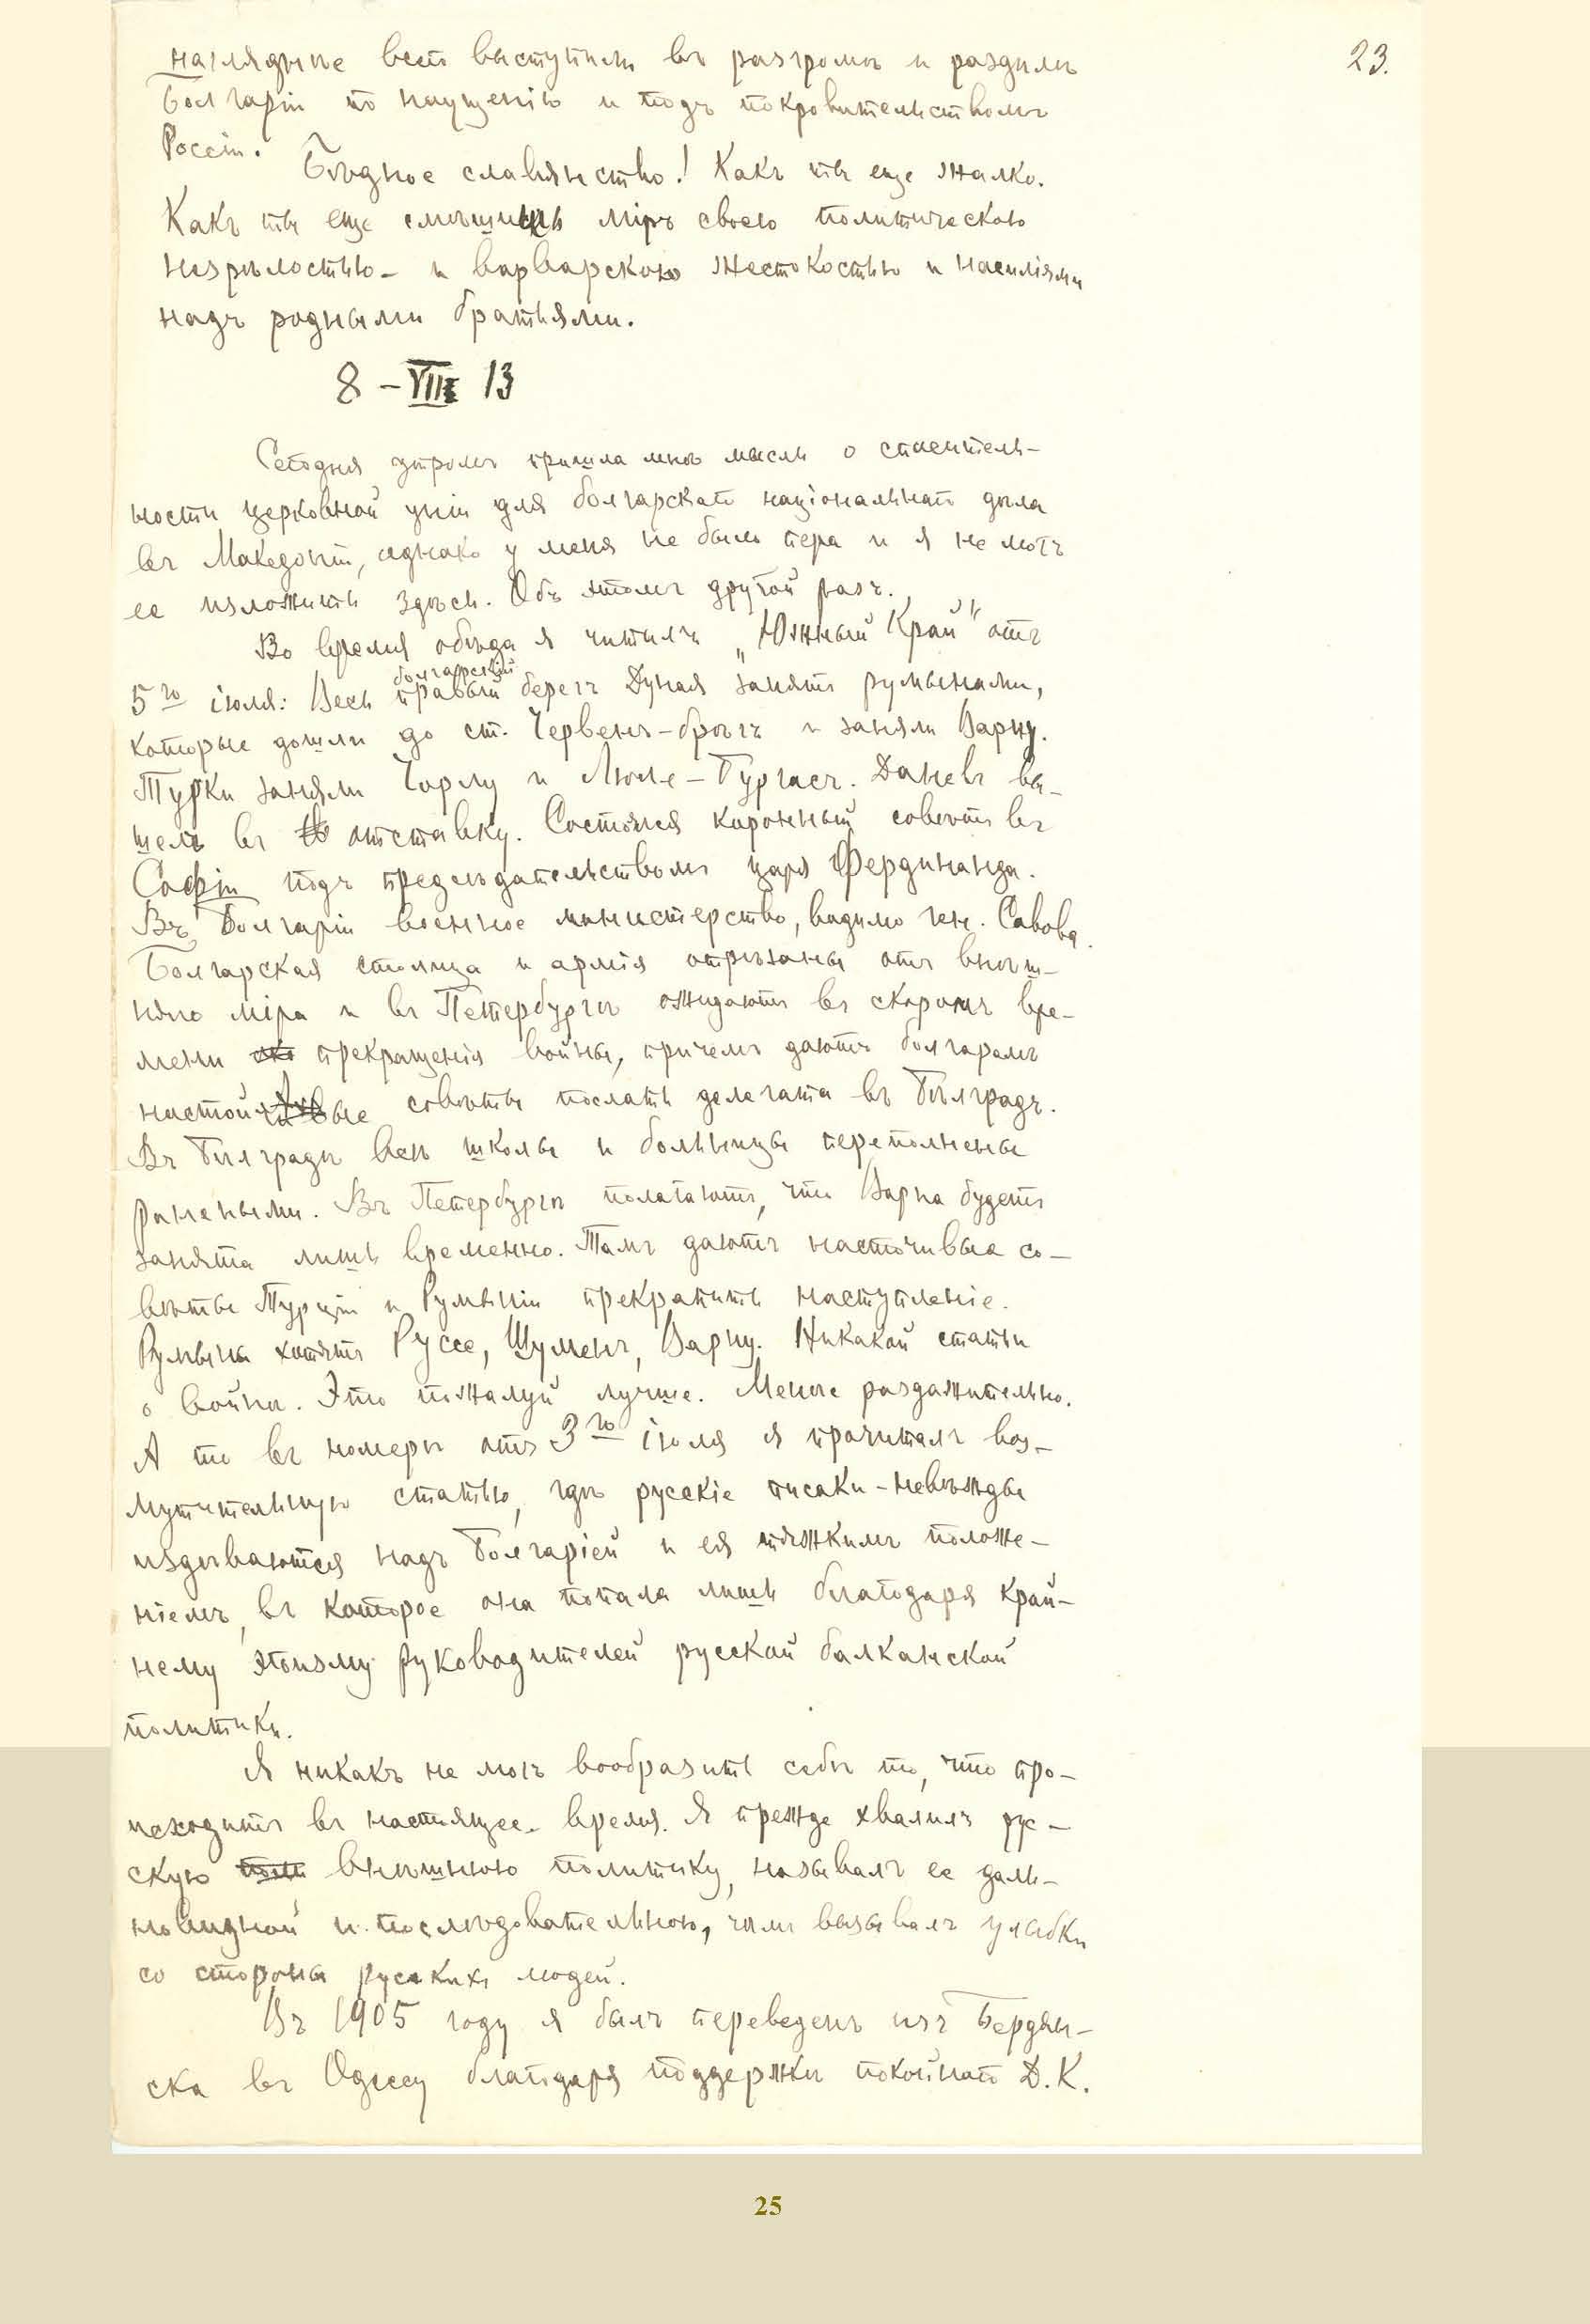 23.
нагляднѣе всего выступили въ разгромѣ и раздѣлѣ
Болгаріи по наущенію и подъ покровительствомъ
Россіи.
Бѣдное славянство! Какъ ты еще жалко.
Какъ ты еще смѣшишь міръ своею политическою
незрѣлостью – и варварскою жестокостью и насиліями
надъ родными братьями.
8 – VIII 13
Сегодня утромъ пришла мнѣ мысль о спаситель-
ности церковной уніи для болгарскаго національнаго дѣла
въ Македоніи, однако у меня не было пера и я не могъ
ее изложить здѣсь. Объ этомъ другой разъ.
Во время обѣда я читалъ „Южный Край" отъ
болгарскій
5го іюля: Весь правый берегъ Дуная занятъ румынами,
которые дошли до ст. Червенъ-брѣгъ и заняли Варну.
Турки заняли Чорлу и Люле-Бургасъ. Даневъ вы-
шелъ въ отставку. Состоялся коронный совѣтъ въ
Софіи подъ предсѣдательствомъ царя Фердинанда.
Въ Болгаріи военное министерство, видимо ген. Савова.
Болгарская столица и армія отрѣзаны отъ внѣш-
няго міра и въ Петербургѣ ожидаютъ въ скоромъ вре-
мени прекращенія войны, причемъ даютъ болгарамъ
настойчивые совѣты послать делегата въ Бѣлградъ.
Въ Бѣлградѣ всѣ школы и больницы переполнены
ранеными. Въ Петербургѣ полагаютъ, что Варна будетъ
занята лишь временно. Тамъ даютъ настойчивые со-
вѣты Турціи и Румыніи прекратить наступленіе.
Румыны хотятъ Руссе, Шуменъ, Варну. Никакой статьи
о войнѣ. Это пожалуй лучше. Менѣе раздражительно.
А то въ номерѣ отъ 3го іюля я прочиталъ воз-
мутительную статью, гдѣ русскіе писаки-невѣжды
издѣваются надъ Болгаріей и ея тяжкимъ положе-
ніемъ, въ которое она попала лишь благодаря край-
нему эгоизму руководителей русской балканской
политики.
Я никакъ не могъ вообразить себѣ то, что про-
исходитъ въ настоящее время. Я прежде хвалилъ рус-
скую внѣшнюю политику, называлъ ее даль-
новидной и послѣдовательною, чѣмъ вызывалъ улыбки
со стороны русскихъ людей.
Въ 1905 году я былъ переведенъ изъ Бердян-
ска въ Одессу благодаря поддержкѣ покойнаго Д.К.
25